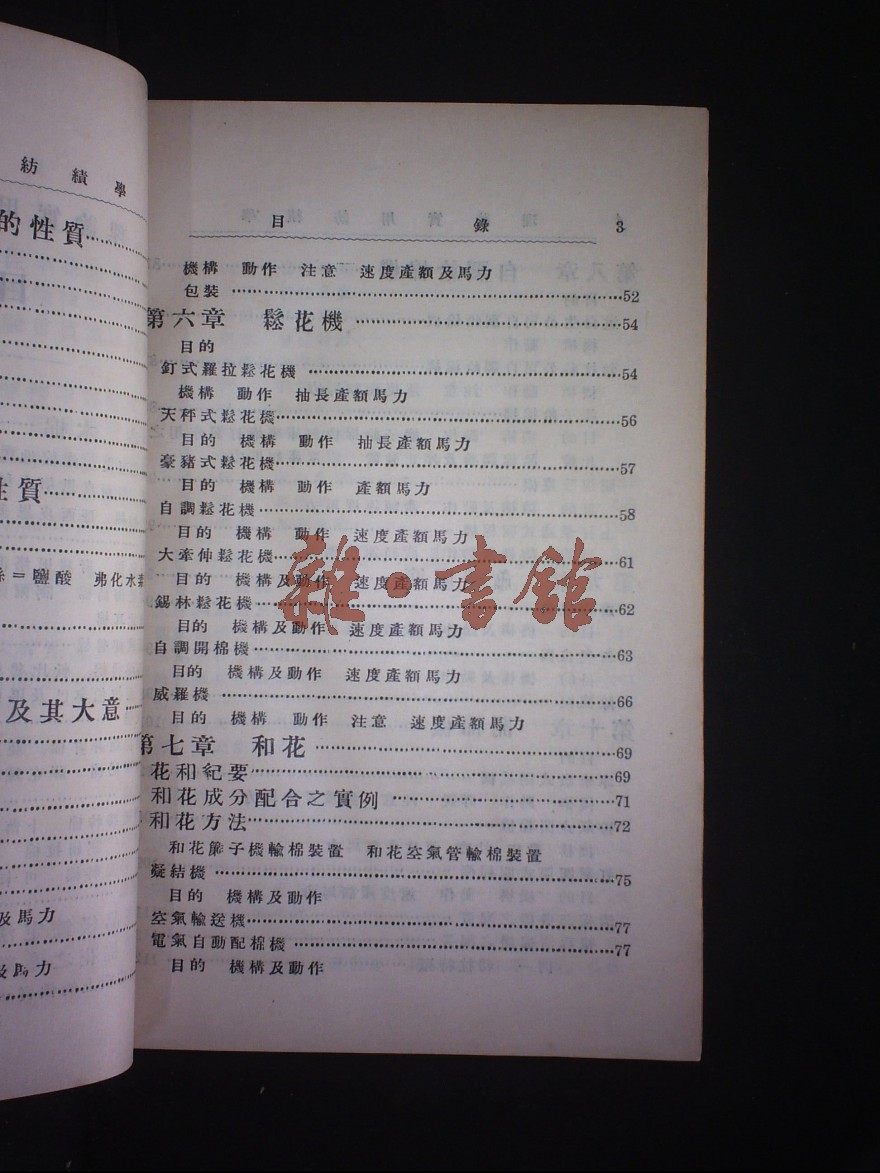 紡績學
的性質
性質
鹽酸 弗化水
及其大意
及馬力
及馬力
目錄 3
機構 動作 注意 速度產額及馬力
包裝 52
第六章 鬆花機 54
目的
釘式羅拉鬆花機 54
機構 動作 抽長產額馬力
天秤式鬆花機 56
目的 機構 動作 抽長產額馬力
豪豬式鬆花機 57
目的 機構 動作 產額馬力
自調鬆花機 58
目的 機構 動作 速度產額馬力
大牽伸鬆花機 61
目的 機構及動作 速度產額馬力
錫林鬆花機 62
目的 機構及動作 速度產額馬力
自調開棉機 63
目的 機構及動作 速度產額馬力
威羅機 66
目的 機構 動作 注意 速度產額馬力
第七章 和花 69
花和紀要 69
和花成分配合之實例 71
和花方法 72
和花簾子機輸棉裝置 和花空氣管輸棉裝置
凝結機 75
目的 機構及動作
空氣輸送機 77
電氣自動配棉機 77
目的 機構及動作
雜·書館